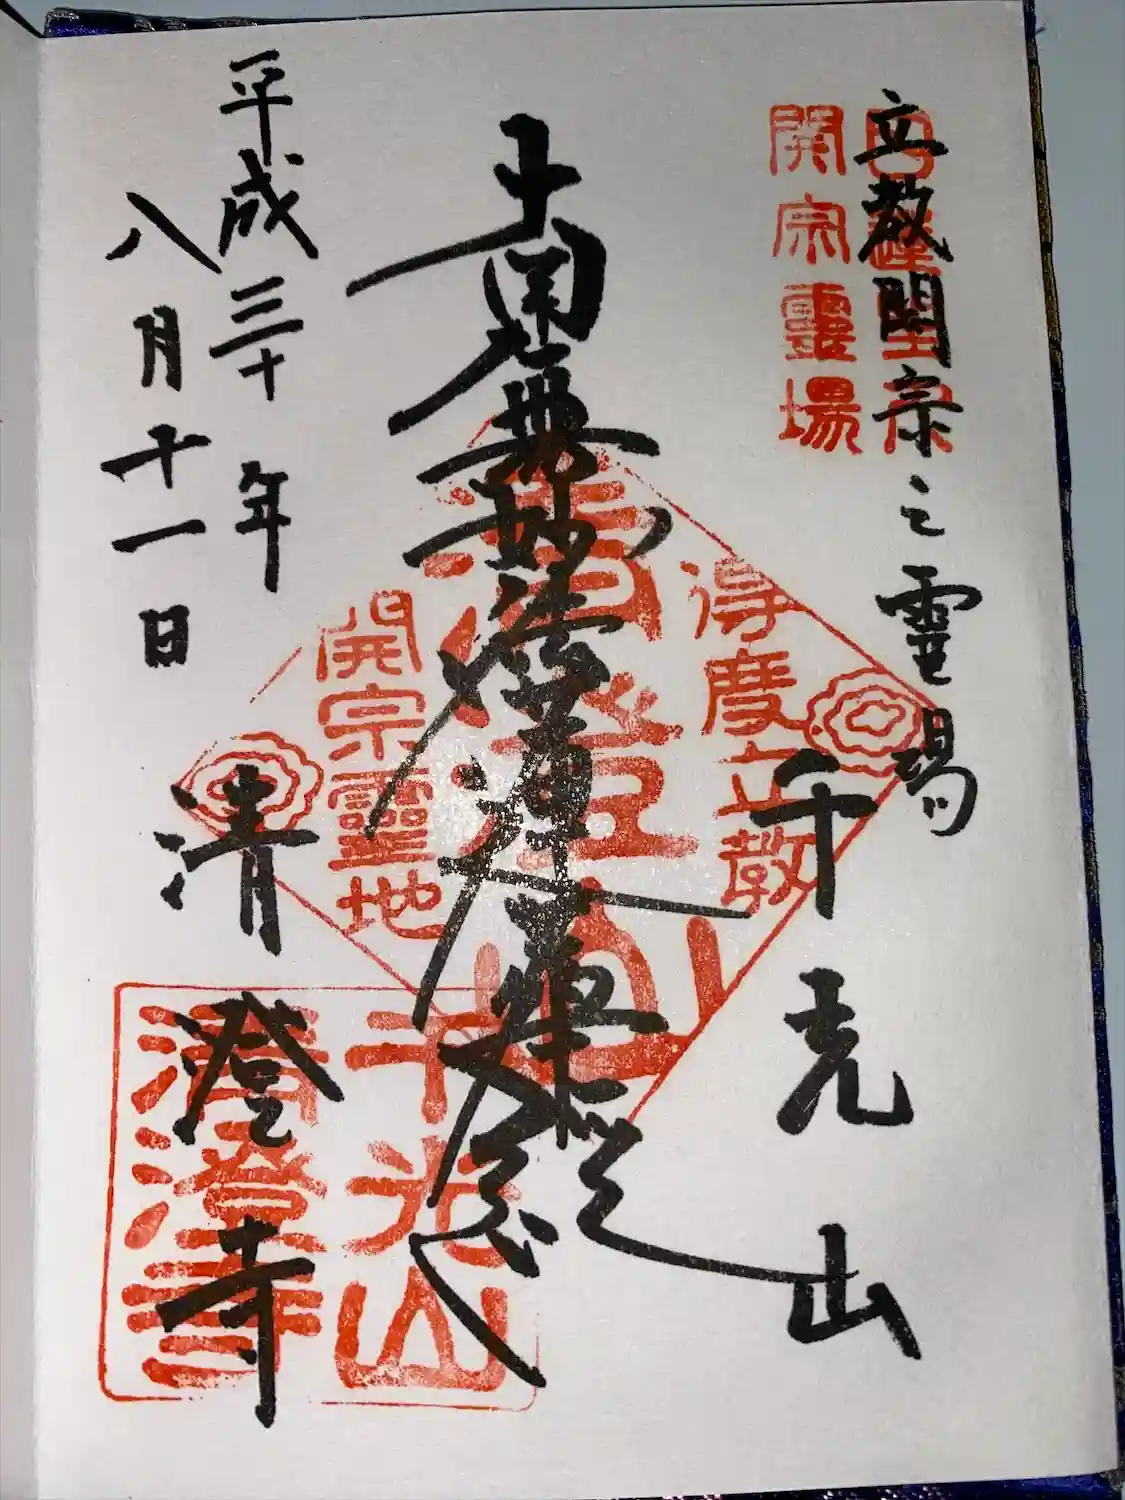 立教開宗之霊場
開宗靈場
千光山
南無妙法蓮華経
得度立教
清澄山
開宗霊地
平成三十年
八月十一日
清澄寺
千光山
清澄寺